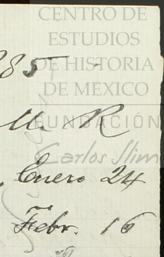 CENTRO DE
ESTUDIOS
DE HISTORIA
DE MÉXICO
FUNDACIÓN
Carlos Slim
885
M. R
Enero 24
Febr. 16